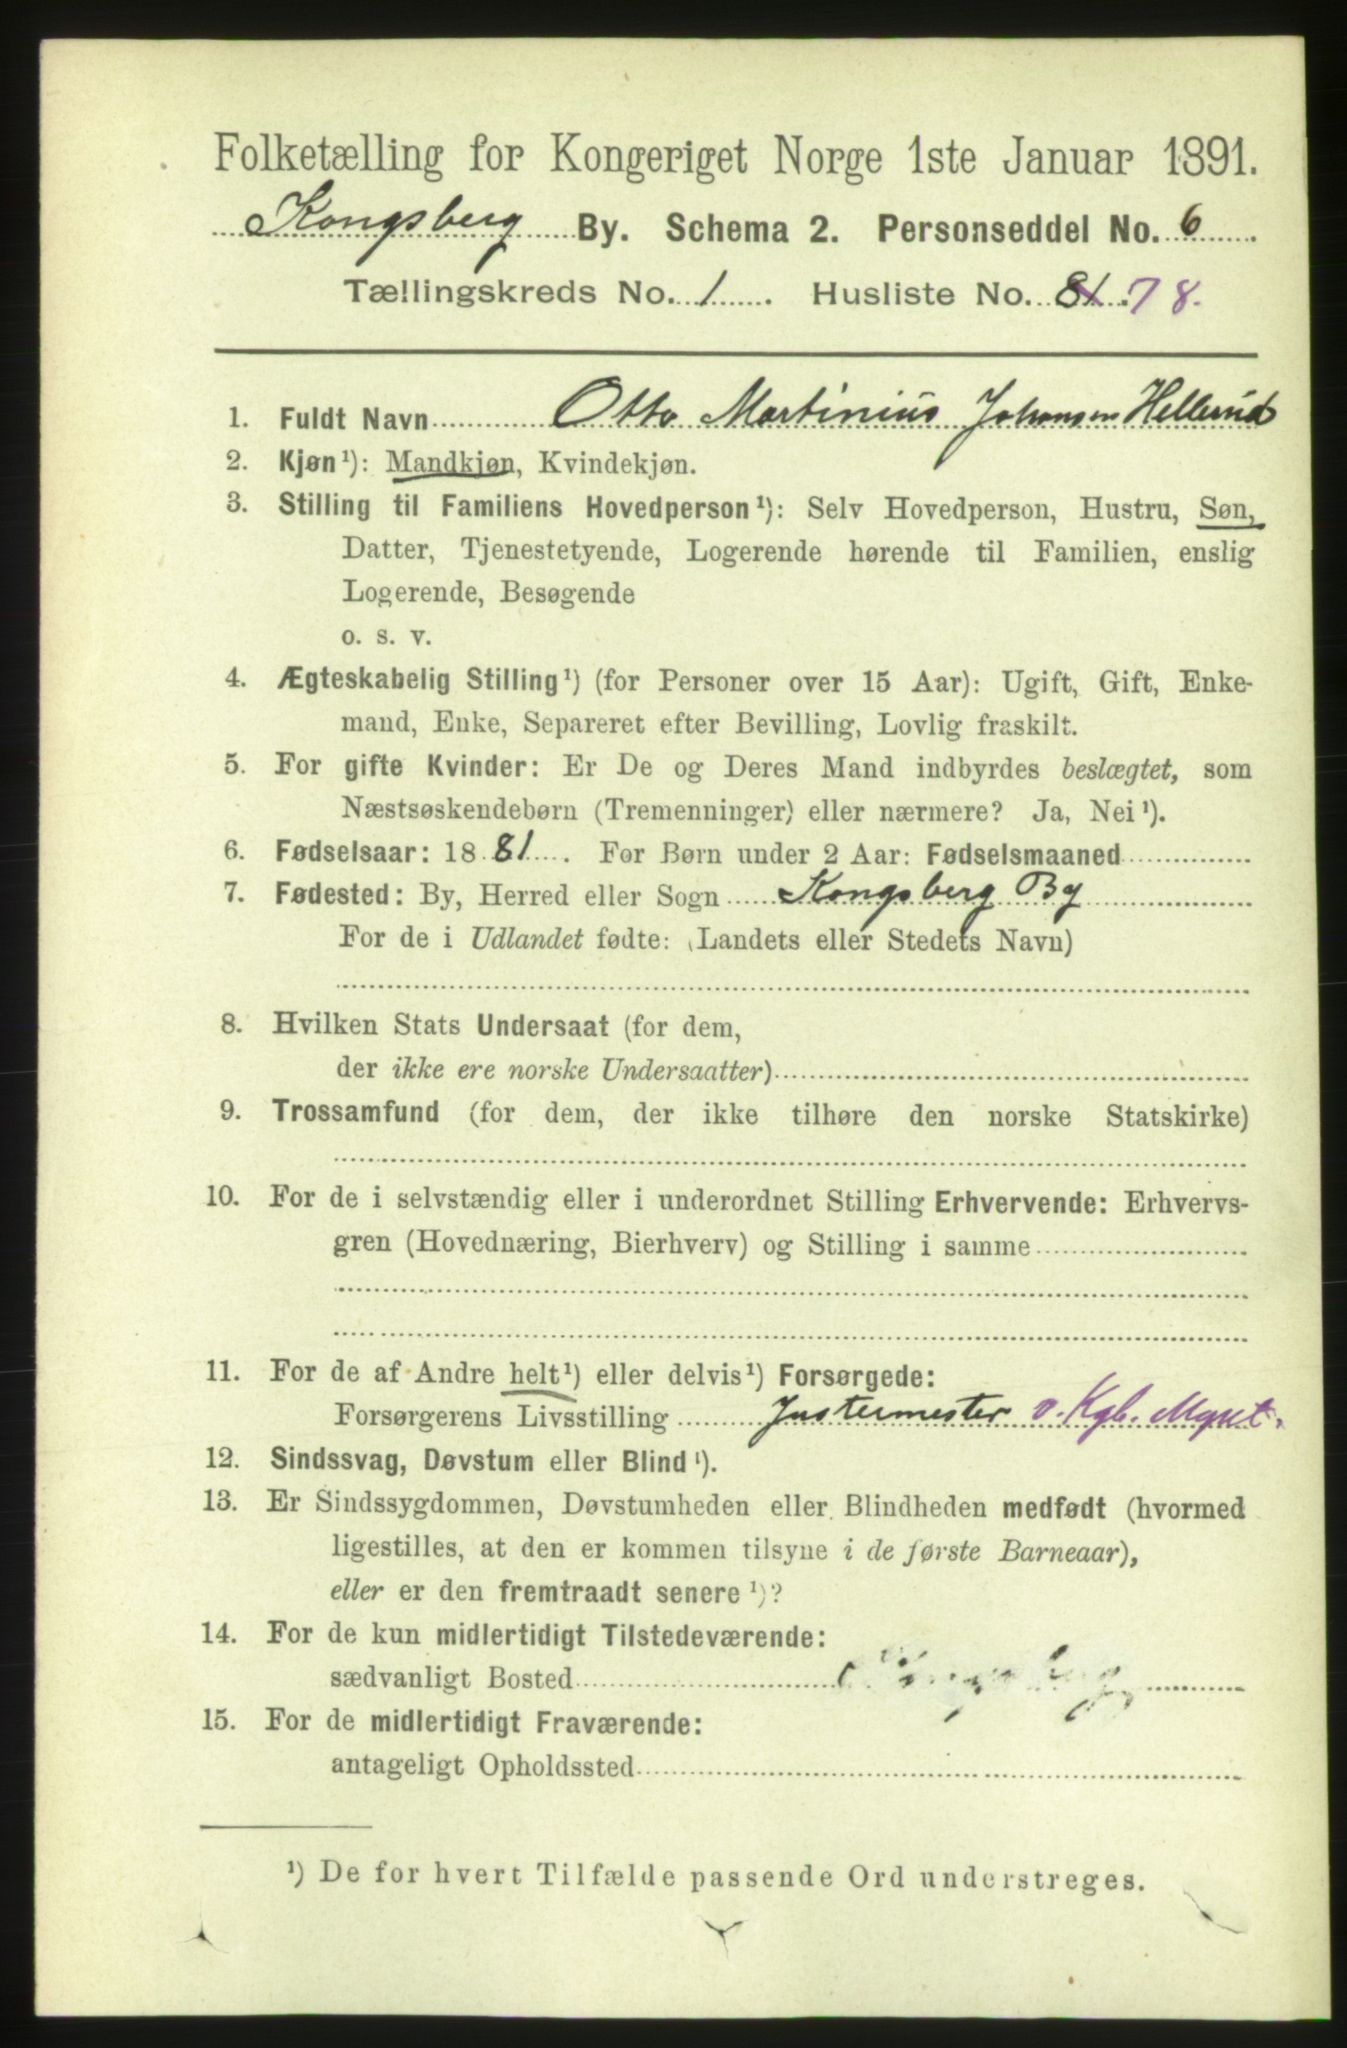 Folketælling for Kongeriget Norge 1ste Januar 1891.
Kongsberg By. Schema 2. Personseddel No. 6.
Tællingskreds No. 1. Husliste No. 81. 78.
1. Fuldt Navn Otto Martinius Johansen Hellerud
2. Kjøn¹): Mandkjøn, Kvindekjøn.
3. Stilling til Familiens Hovedperson¹): Selv Hovedperson, Hustru, Søn,
Datter, Tjenestetyende, Logerende hørende til Familien, enslig
Logerende, Besøgende
o. s. v.
4. Ægteskabelig Stilling¹) (for Personer over 15 Aar): Ugift, Gift, Enke-
mand, Enke, Separeret efter Bevilling, Lovlig fraskilt.
5. For gifte Kvinder: Er De og Deres Mand indbyrdes beslægtet, som
Næstsøskendebørn (Tremenninger) eller nærmere? Ja, Nei¹).
6. Fødselsaar: 1881. For Børn under 2 Aar: Fødselsmaaned
7. Fødested: By, Herred eller Sogn Kongsberg By
For de i Udlandet fødte: (Landets eller Stedets Navn)
8. Hvilken Stats Undersaat (for dem,
der ikke ere norske Undersaatter)
9. Trossamfund (for dem, der ikke tilhøre den norske Statskirke)
10. For de i selvstændig eller i underordnet Stilling Erhvervende: Erhvervs-
gren (Hovednæring, Bierhverv) og Stilling i samme
11. For de af Andre helt¹) eller delvis¹) Forsørgede:
Forsørgerens Livsstilling Justermester v. Kgb. Mynt.
12. Sindssvag, Døvstum eller Blind¹).
13. Er Sindssygdommen, Døvstumheden eller Blindheden medfødt (hvormed
ligestilles, at den er kommen tilsyne i de første Barneaar),
eller er den fremtraadt senere¹)?
14. For de kun midlertidigt Tilstedeværende:
sædvanligt Bosted
15. For de midlertidigt Fraværende:
antageligt Opholdssted
¹) De for hvert Tilfælde passende Ord understreges.